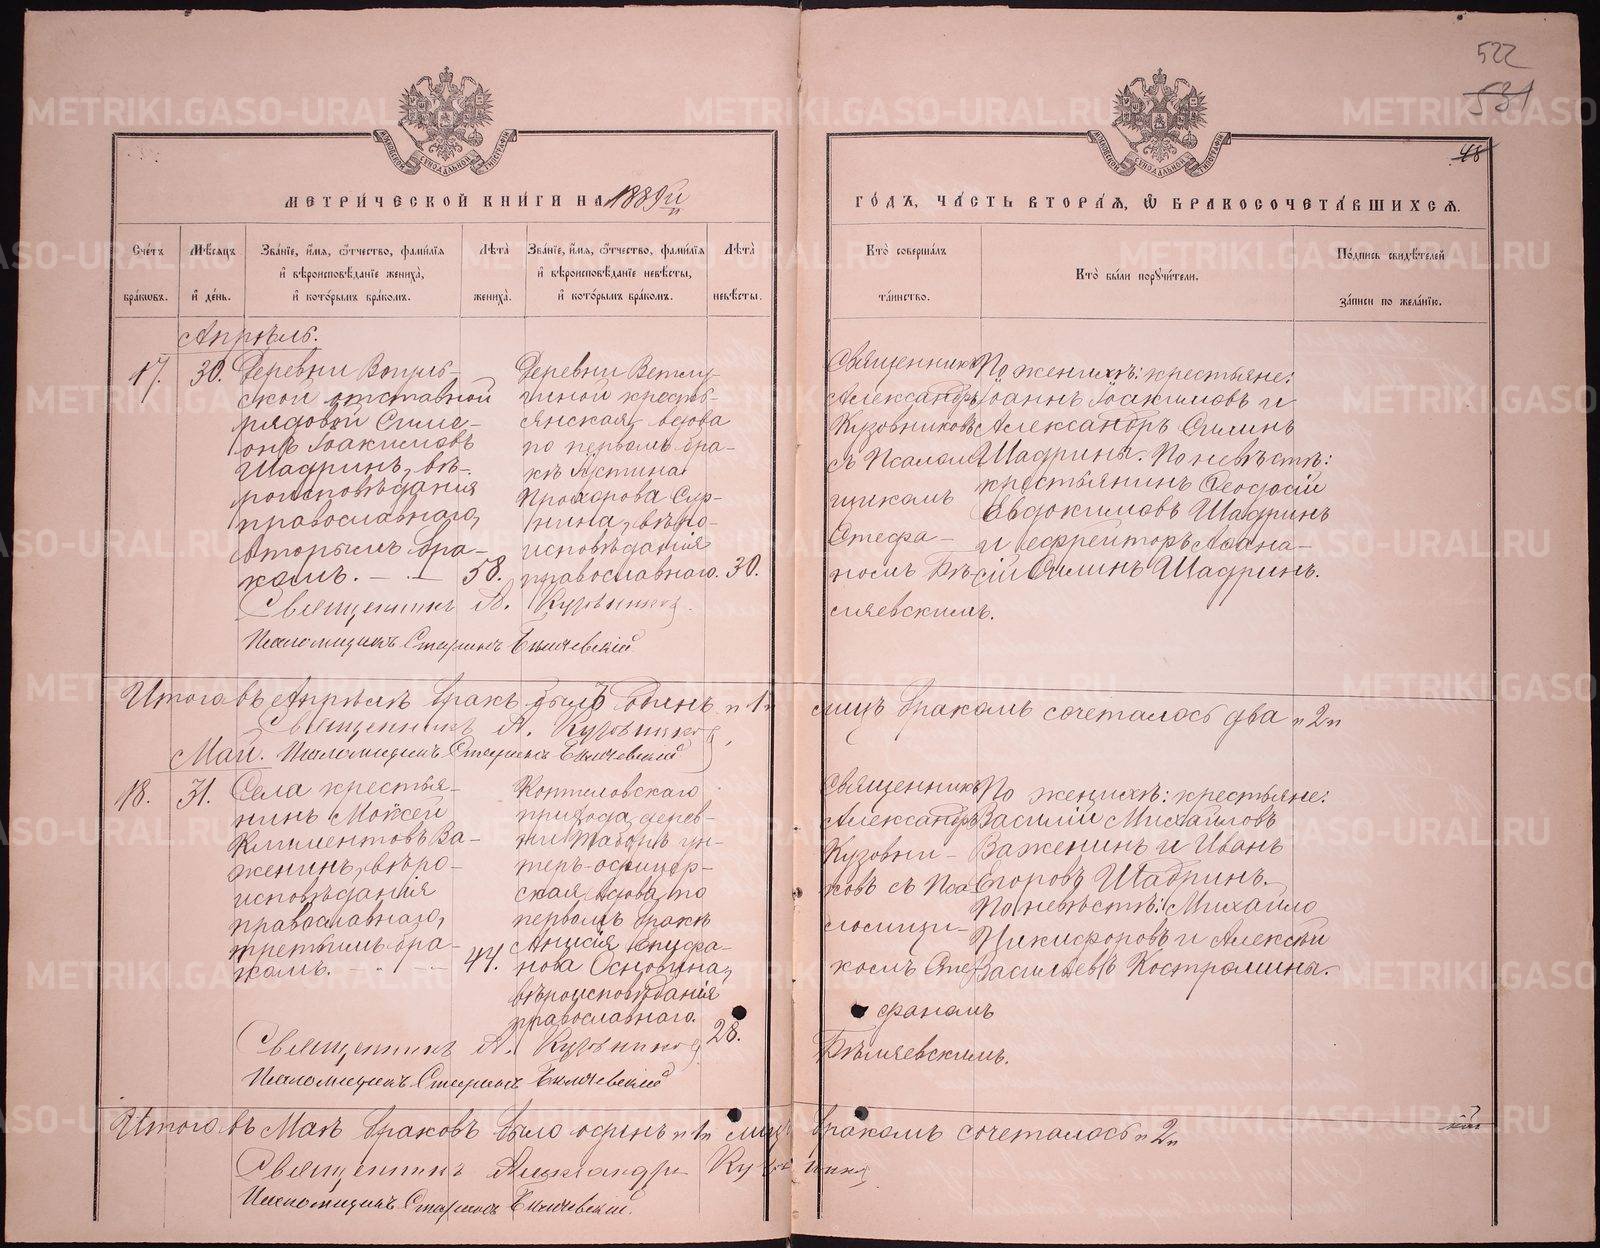 522
531
48
МЕТРИЧЕСКОЙ КНИГИ НА 1889й
ГОДЪ, ЧАСТЬ ВТОРАЯ, Ѡ БРАКОСОЧЕТАВШИХСЯ.
Счетъ браковъ.
Мѣсяцъ и день.
Званіе, имя, отчество, фамилія
и вѣроисповѣданіе жениха,
и которымъ бракомъ.
Лѣта жениха.
Званіе, имя, отчество, фамилія
и вѣроисповѣданіе невѣсты,
и которымъ бракомъ.
Лѣта невѣсты.
Кто совершалъ
таинство.
Кто были поручители.
Подпись свидѣтелей
записи по желанію.
Апрѣль.
17.
30.
Деревни
ской отставной
рядовой Симе-
онъ Іоакимовъ
Шадринъ, вѣ-
роисповѣданія
православнаго,
вторымъ бра-
комъ.
58.
Деревни Ветлу-
гиной кресть-
янская вдова
по первомъ бра-
кѣ Іустина
Сур-
нина, вѣро-
исповѣданія
православнаго.
30.
Священникъ
Александръ
Кузовниковъ
съ Псалом-
щикомъ
Стефа-
номъ Бѣ-
ляевскимъ.
По женихѣ: крестьяне:
Іоаннъ Іоакимовъ и
Александръ Силинъ
Шадрины. По невѣстѣ:
крестьянинъ Ѳеодосій
Евдокимовъ Шадринъ
и ефрейторъ Аѳана-
сій Силинъ Шадринъ.
Священникъ А. Кузовниковъ.
Псаломщикъ Стефанъ Бѣляевскій
Итого въ Апрѣлѣ бракъ былъ одинъ "1" лицъ бракомъ сочеталось два "2"
Священникъ А. Кузовниковъ
Май. Псаломщикъ Стефанъ Бѣляевскій
18.
31.
Села крестья-
нинъ Моѵсей
Климентовъ Ва-
женинъ, вѣро-
исповѣданія
православнаго,
третьимъ бра-
комъ.
44.
Коптеловскаго
прихода, дерев-
ни Таборъ ун-
теръ-офицер-
ская вдова, по
первомъ бракѣ
Анисія Епифа-
нова Основина,
вѣроисповѣданія
православнаго.
28.
Священникъ
Александръ
Кузовни-
ковъ съ Пса-
ломщи-
комъ Сте-
фаномъ
Бѣляевскимъ.
По женихѣ: крестьяне:
Василій Михайловъ
Важенинъ и Иванъ
Егоровъ Шадринъ.
По невѣстѣ: Михаило
Никифоровъ и Алексѣй
Васильевъ Костромины.
Священникъ А. Кузовниковъ
Псаломщикъ Стефанъ Бѣляевскій
Итого въ Маѣ браковъ было одинъ "1" лицъ бракомъ сочеталось "2"
Священникъ Александръ Кузовниковъ
Псаломщикъ Стефанъ Бѣляевскій.
METRIKI.GASO-URAL.RU